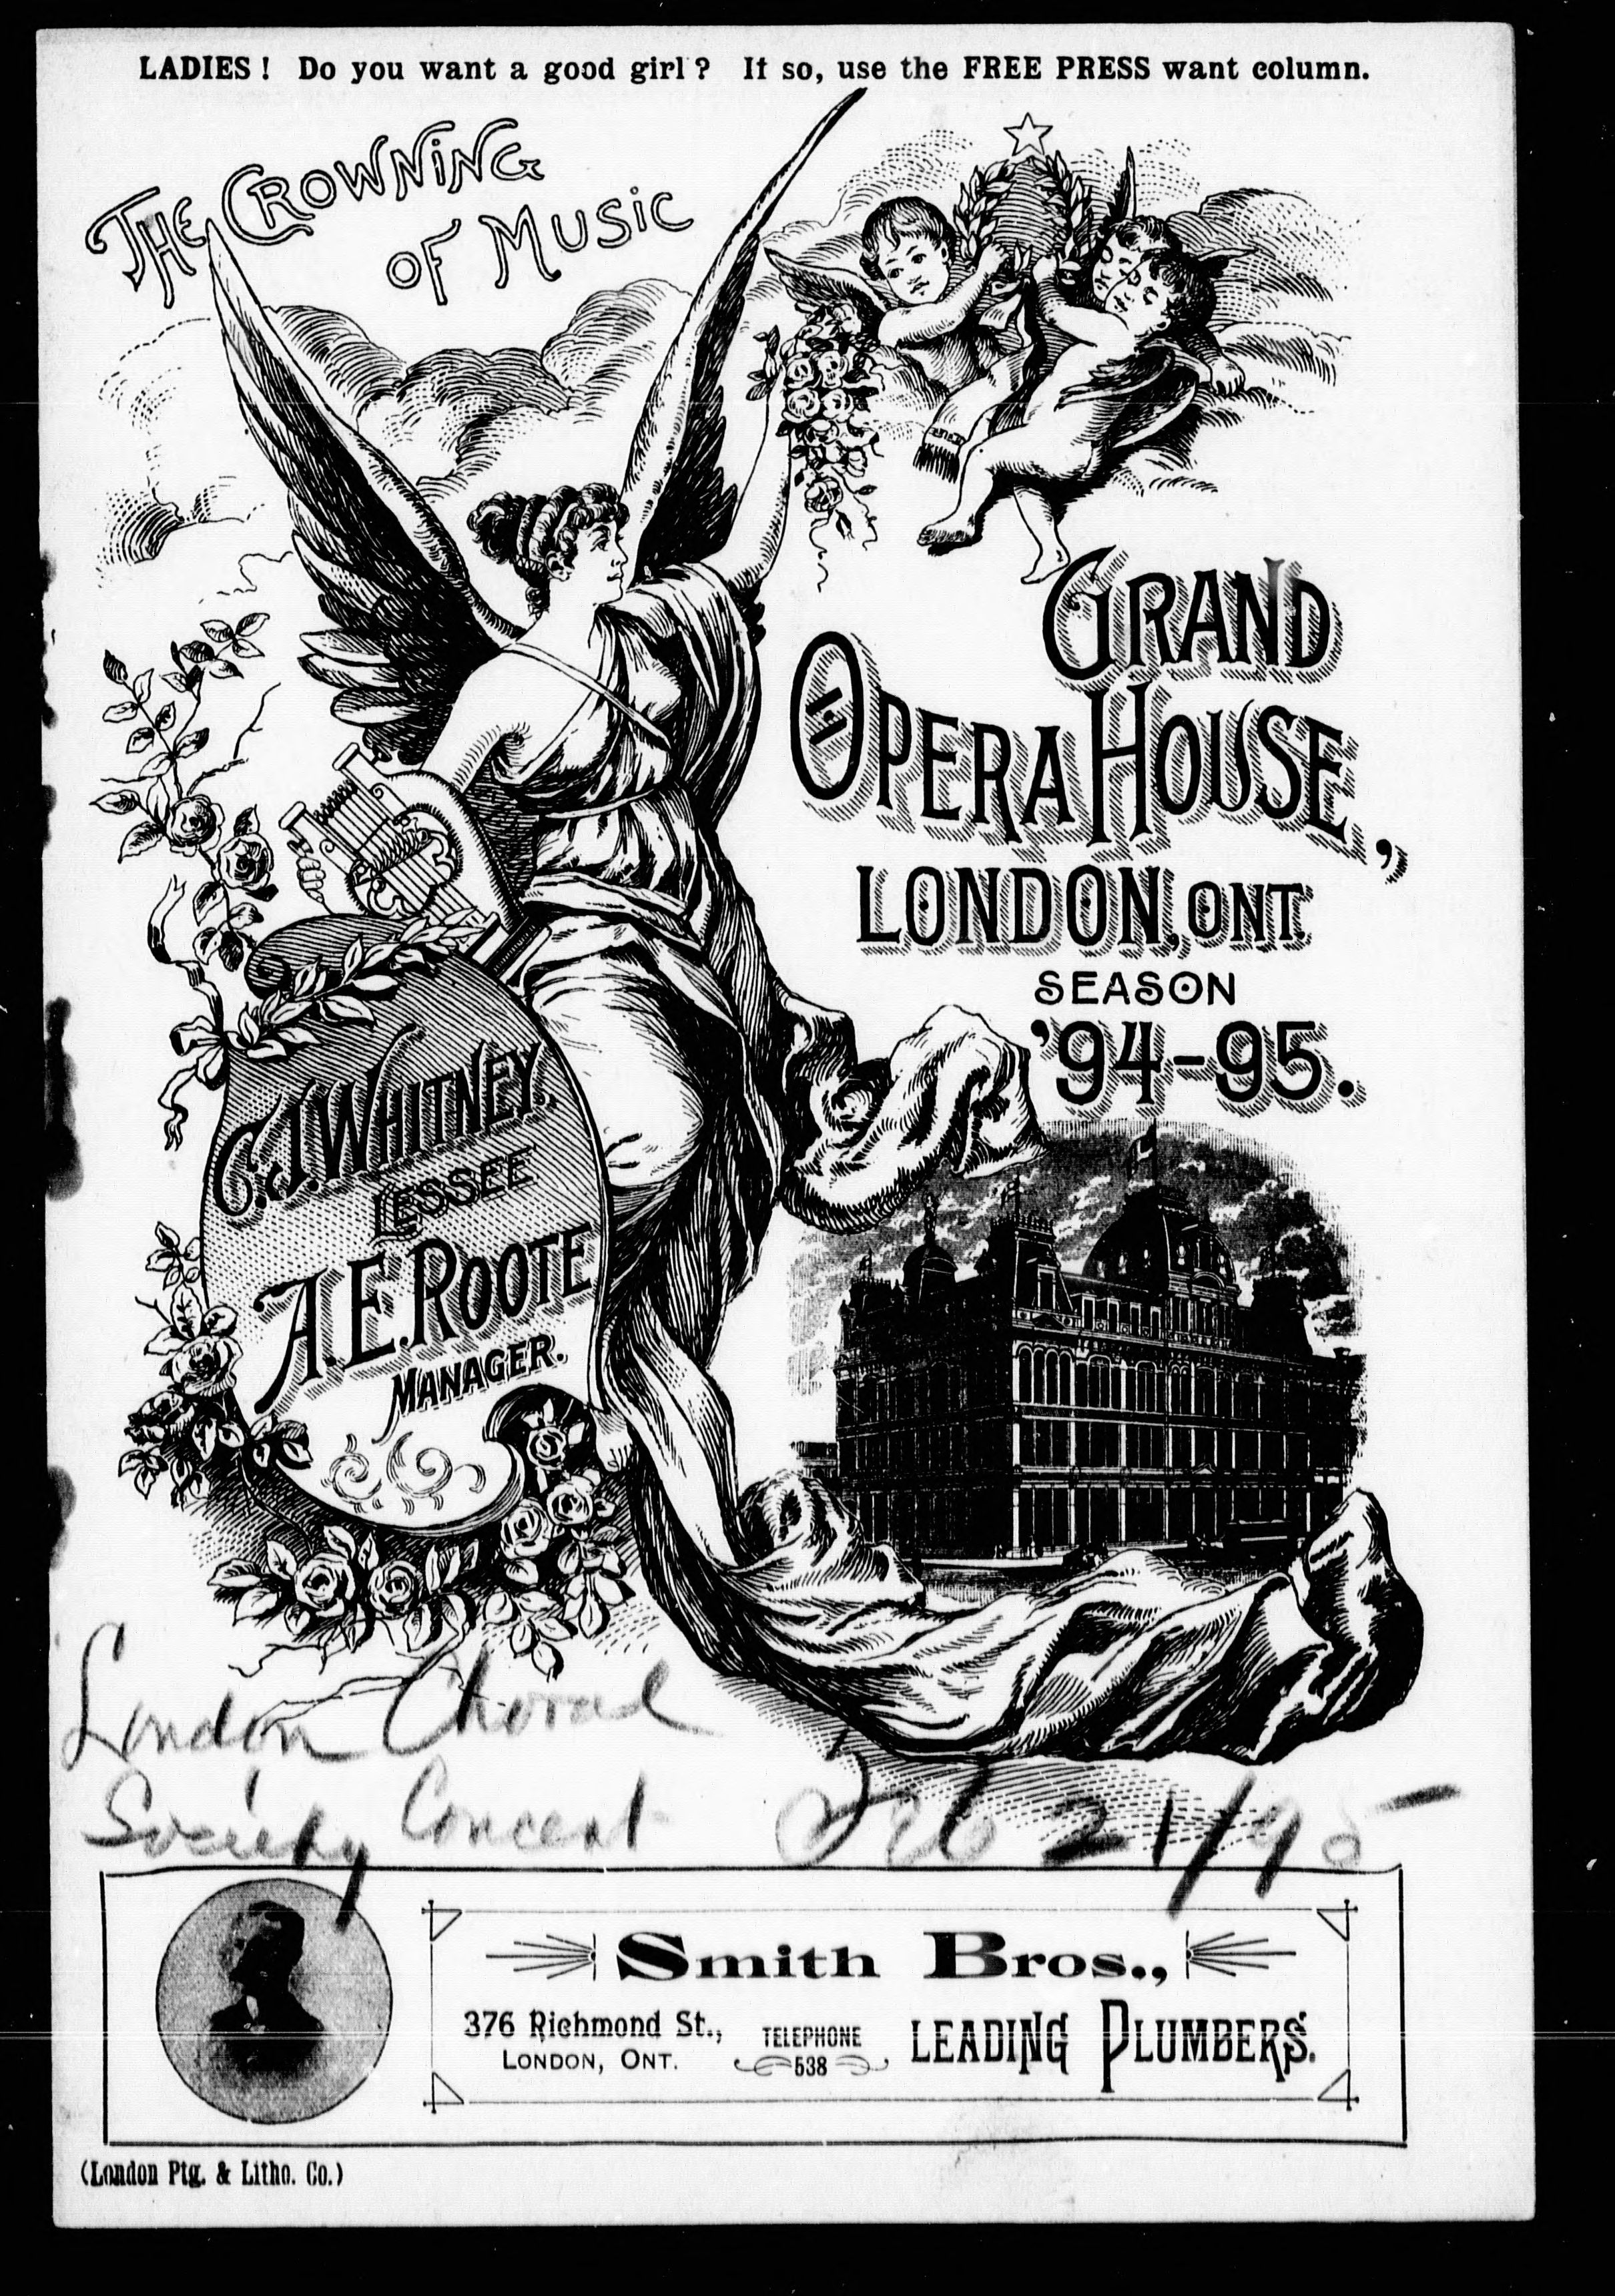 LADIES ! Do you want a good girl ? If so, use the FREE PRESS want column.
THE CROWNING
OF MUSIC
GRAND
OPERA HOUSE,
LONDON, ONT.
SEASON
'94-95.
C. J. WHITNEY,
LESSEE
A. E. ROOTE
MANAGER.
London Choral
Society Concert Feb 21/95
Smith Bros.,
376 Richmond St.,
LONDON, ONT.
TELEPHONE
538
LEADING PLUMBERS.
(London Ptg. & Litho. Co.)